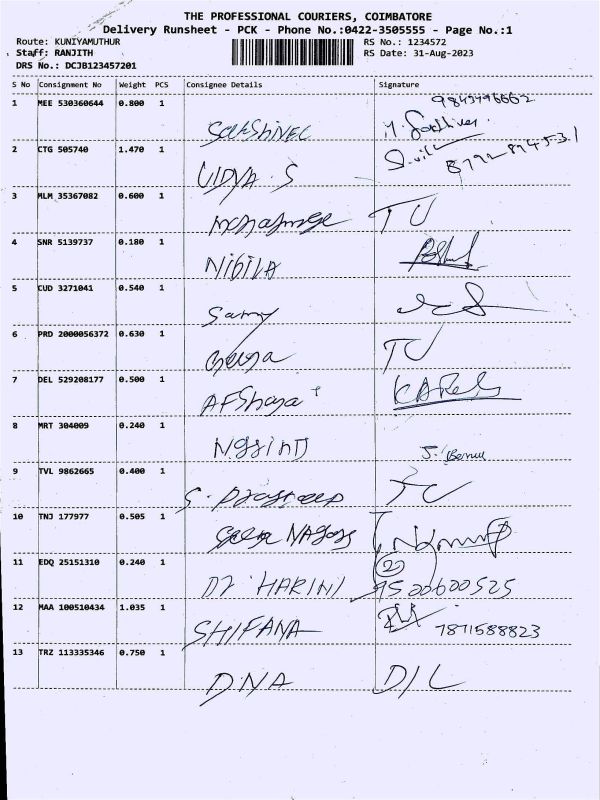 THE PROFESSIONAL COURIERS, COIMBATORE
Delivery Runsheet - PCK - Phone No.:0422-3505555 - Page No.:1
Route: KUNIYAMUTHUR RS No.: 1234572
Staff: RANJITH RS Date: 31-Aug-2023
DRS No.: DCJB123457201
S No Consignment No Weight PCS Consignee Details Signature
1 MEE 530360644 0.800 1
2 CTG 505740 1.470 1
VIDYA. S
3 MLM 35367082 0.600 1
TU
4 SNR 5139737 0.180 1
NIBILA
5 CUD 3271041 0.540 1
Samy
6 PRD 2000056372 0.630 1
TU
7 DEL 529208177 0.500 1
AFShaja
8 MRT 304009 0.240 1
9 TVL 9862665 0.400 1
S.
10 TNJ 177977 0.505 1
11 EDQ 25151310 0.240 1
HARINI 9500600525
12 MAA 100510434 1.035 1
SHIFANA 7871588823
13 TRZ 113335346 0.750 1
DNA D/L